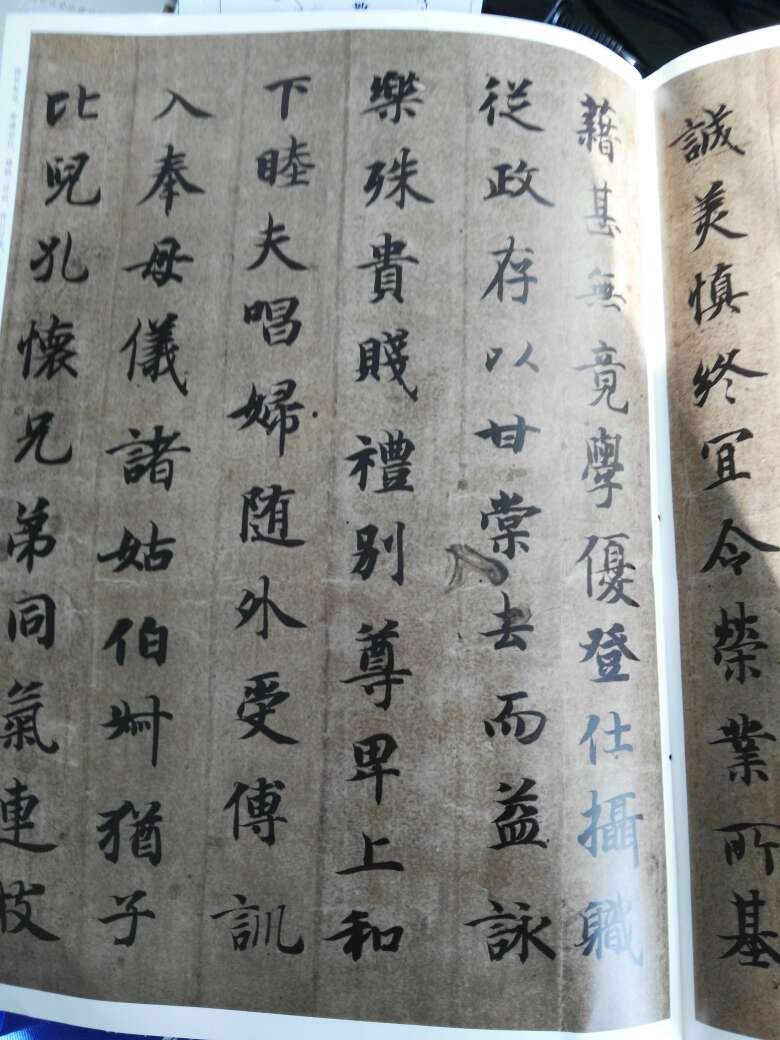 誠美慎終冝令榮業所基
藉甚無竟學優登仕攝職
從政存以甘棠去而益詠
樂殊貴賤禮別尊卑上和
下睦夫唱婦随外受傅訓
入奉母儀諸姑伯叔猶子
比兒孔懷兄弟同氣連枝